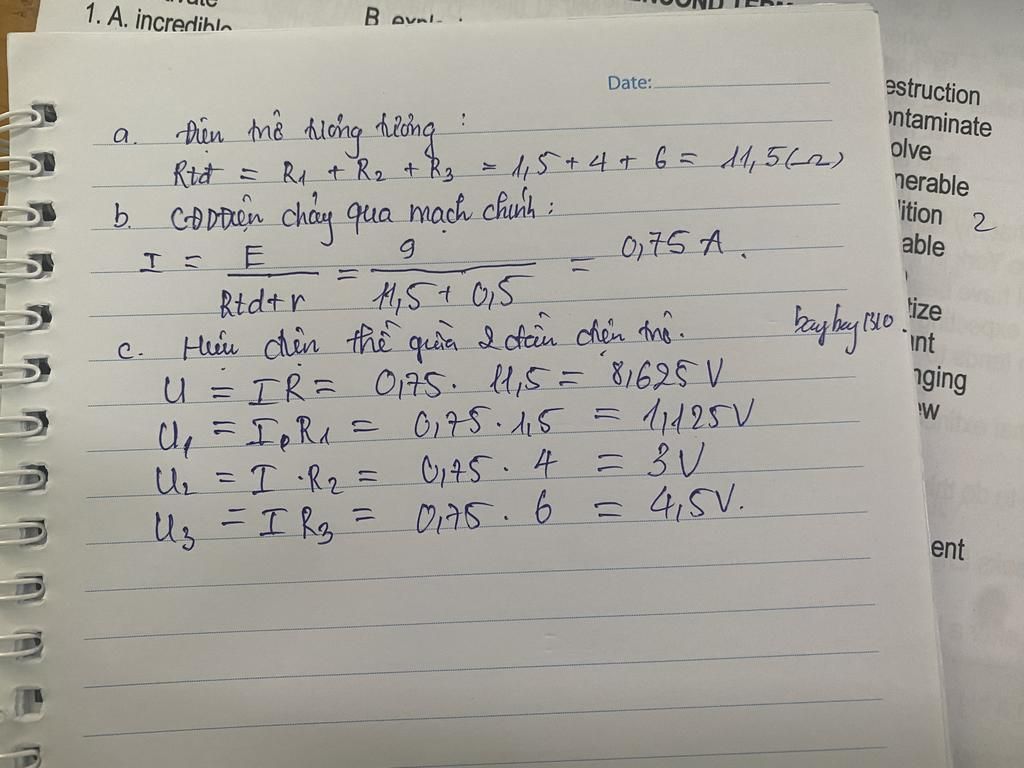 1. A. incredible
B expl
SECOND TERM
Date:
a. Điện trở tương tương :
Rtđ = R1 + R2 + R3 = 1,5 + 4 + 6 = 11,5 (Ω)
b. CĐDĐiện chảy qua mạch chính :
I = E / Rtđ+r = 9 / 11,5 + 0,5 = 0,75 A.
c. Hiệu điện thế giữa 2 đầu điện trở.
bayhay1310.
U = I R = 0,75. 11,5 = 8,625 V
U1 = I.R1 = 0,75 . 1,5 = 1,125V
U2 = I .R2 = 0,75 . 4 = 3V
U3 = I R3 = 0,75 . 6 = 4,5V.
estruction
ontaminate
olve
nerable
lition 2
able
tize
nt
nging
ew
ent